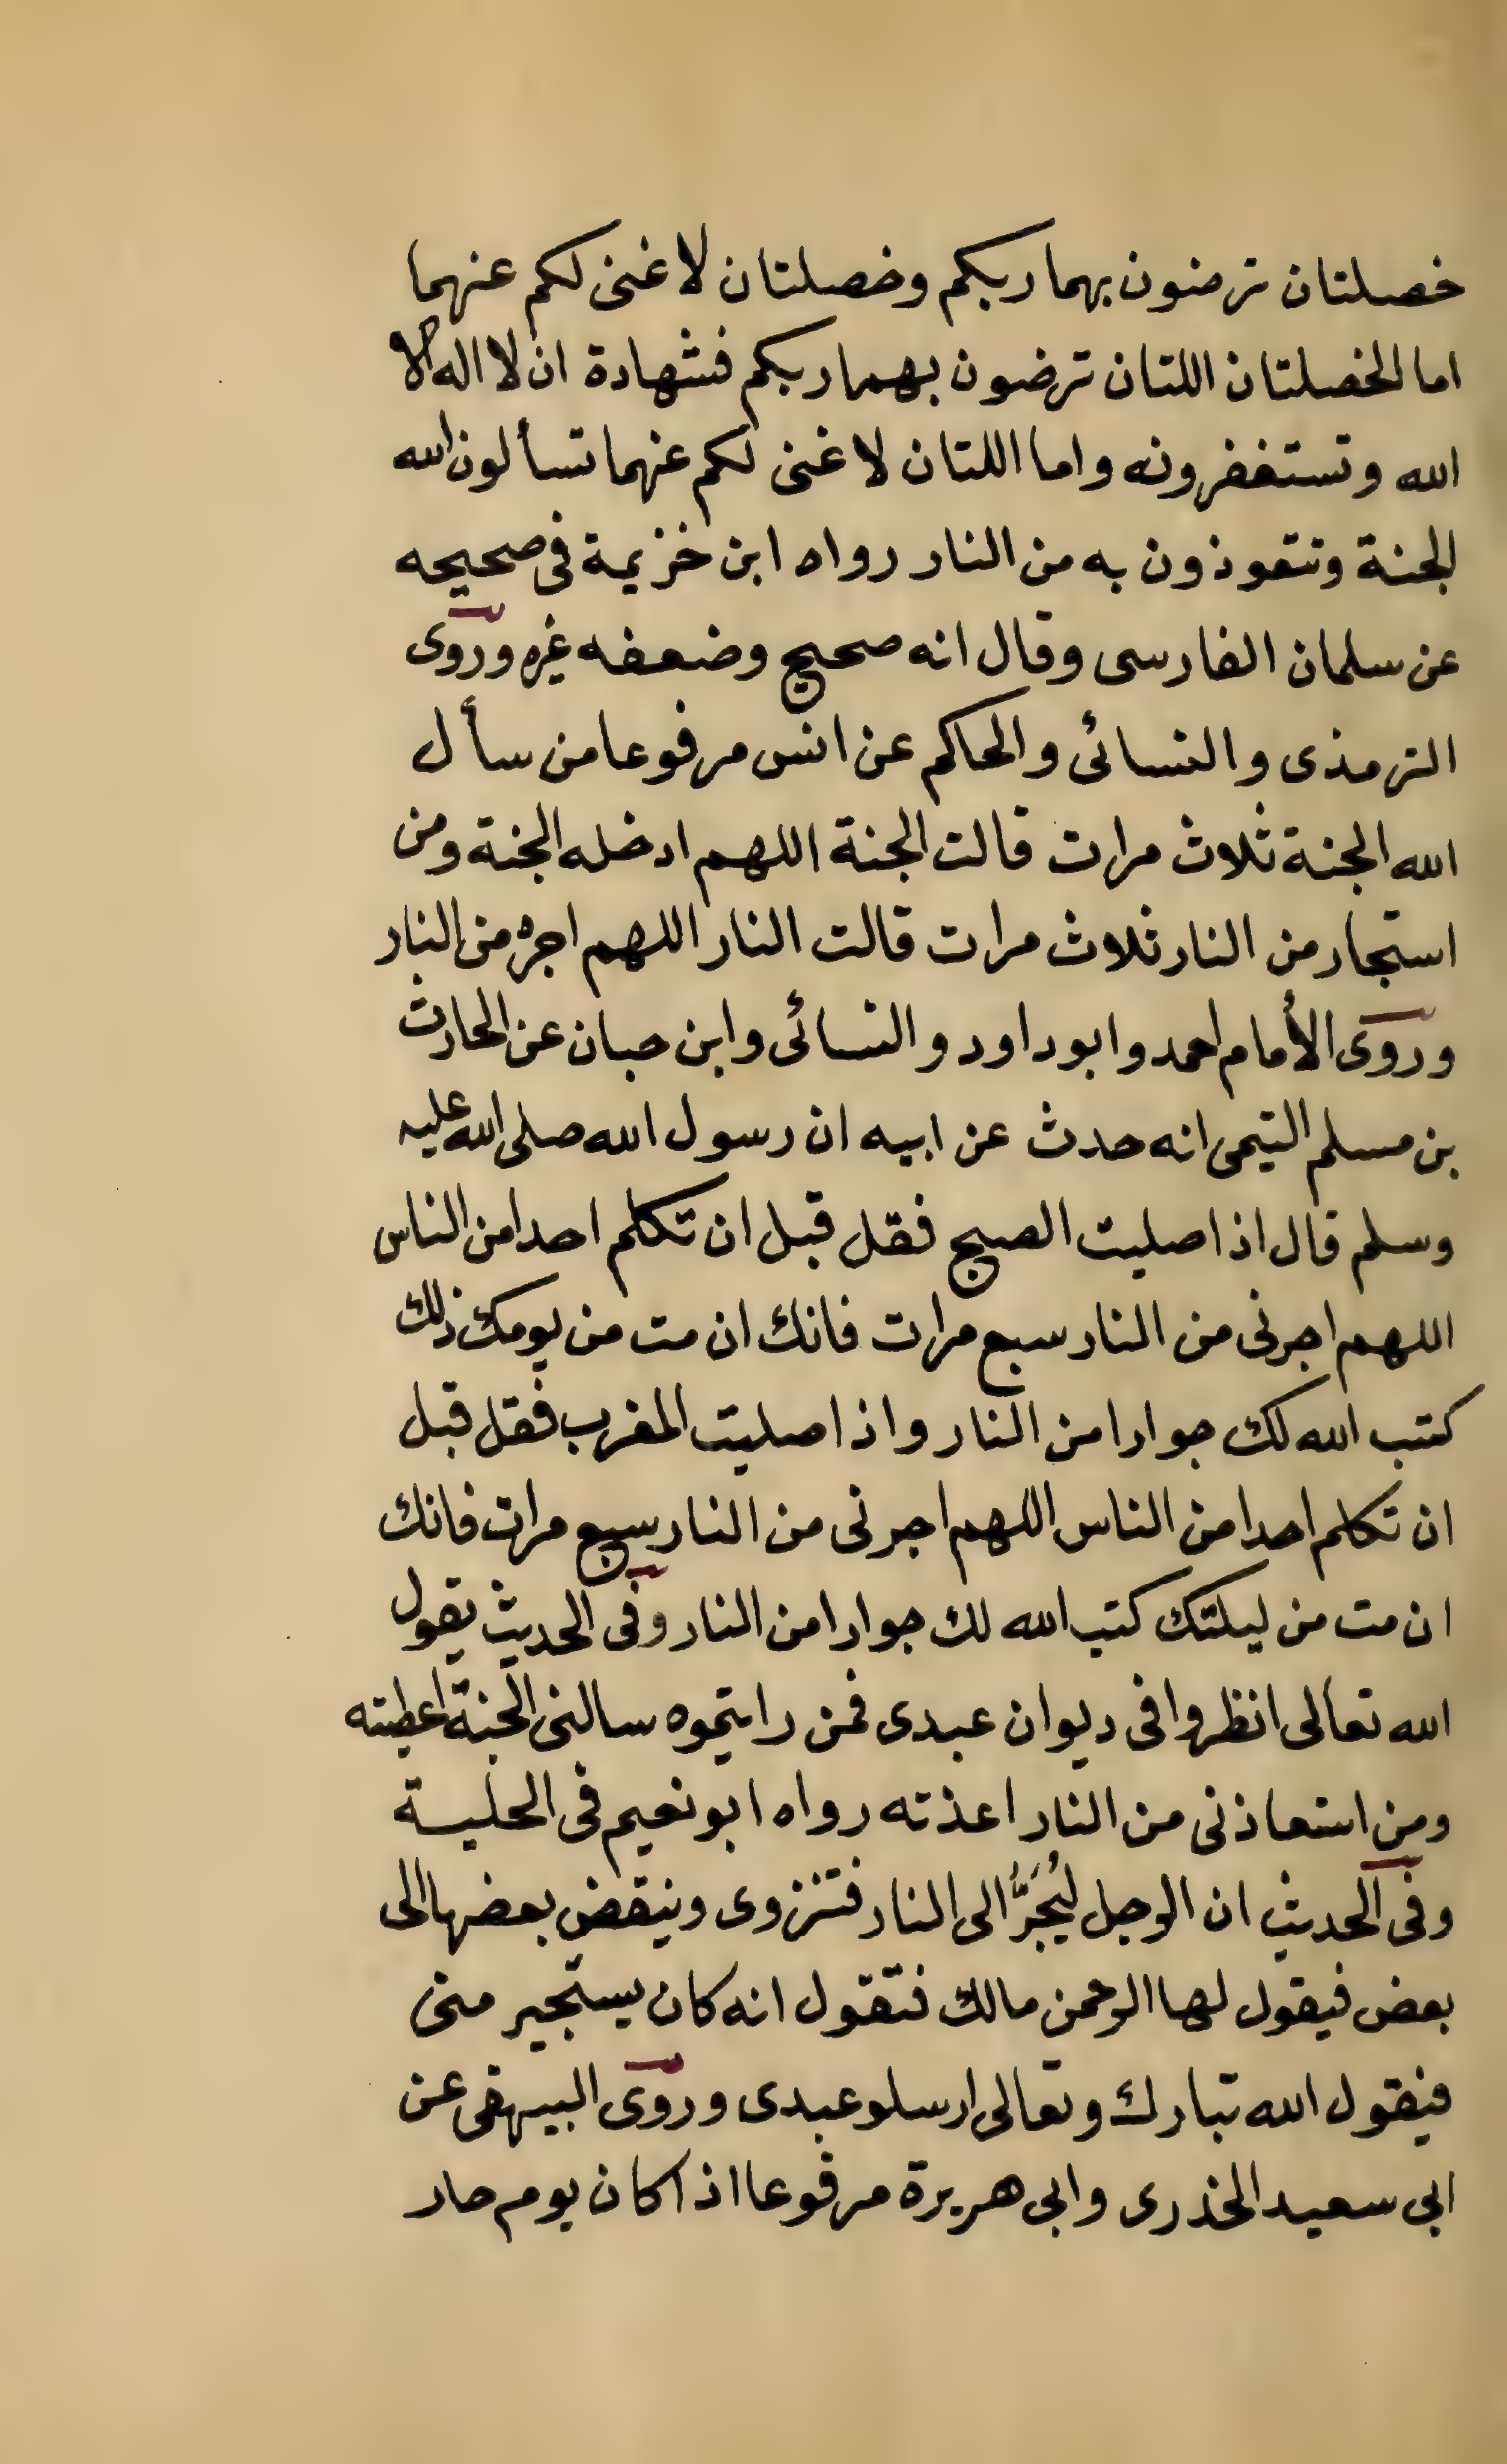 خصلتان ترضون بهما ربكم وخصلتان لا غنى لكم عنهما
اما الخصلتان اللتان ترضون بهما ربكم فشهادة ان لا اله الا
الله وتستغفرونه واما اللتان لا غنى لكم عنهما تسألون الله
الجنة وتتعوذون به من النار رواه ابن خزيمة فى صحيحه
عن سلمان الفارسى وقال انه صحيح وضعفه غيره وروى
الترمذى والنسائى والحاكم عن انس مرفوعا من سأل
الله الجنة ثلاث مرات قالت الجنة اللهم ادخله الجنة ومن
استجار من النار ثلاث مرات قالت النار اللهم اجره من النار
وروى الأمام احمد وابو داود والنسائى وابن حبان عن الحارث
بن مسلم التيمى انه حدث عن ابيه ان رسول الله صلى الله عليه
وسلم قال اذا صليت الصبح فقل قبل ان تكلم احدا من الناس
اللهم اجرنى من النار سبع مرات فانك ان مت من يومك ذلك
كتب الله لك جوارا من النار واذا صليت المغرب فقل قبل
ان تكلم احدا من الناس اللهم اجرنى من النار سبع مرات فانك
ان مت من ليلتك كتب الله لك جوارا من النار وفى الحديث يقول
الله تعالى انظروا فى ديوان عبدى فمن رايتموه سالنى الجنة اعطيته
ومن استعاذنى من النار اعذته رواه ابو نعيم فى الحلية
وفى الحديث ان الرجل ليُجَرُّ الى النار فتنزوى وينقض بعضها الى
بعض فيقول لها الرحمن مالك فتقول انه كان يستجير منى
فيقول الله تبارك وتعالى ارسلو عبدى وروى البيهقى عن
ابى سعيد الخذرى وابى هريرة مرفوعا اذا كان يوم حار